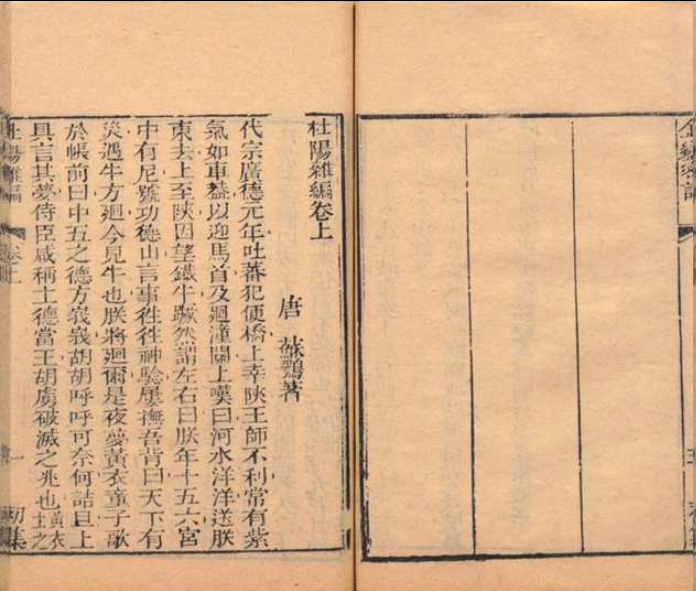 杜陽雜編卷上
唐 蘇鶚著
代宗廣德元年吐蕃犯便橋上幸陝王師不利常有紫
氣如車蓋以迎馬首及迴潼關上嘆曰河水洋洋送朕
東去上至陝因望鐵牛蹶然謂左右曰朕年十五六宮
中有尼號功德山言事徃徃神驗屢撫吾背曰天下有
災遇牛方迴今見牛也朕將迴爾是夜夢黃衣童子歌
於帳前曰中五之德方峩峩胡胡呼呼可奈何詰旦上
具言其夢侍臣咸稱土德當王胡虜破滅之兆也黃衣土之
杜陽雜編 卷上 一 初集